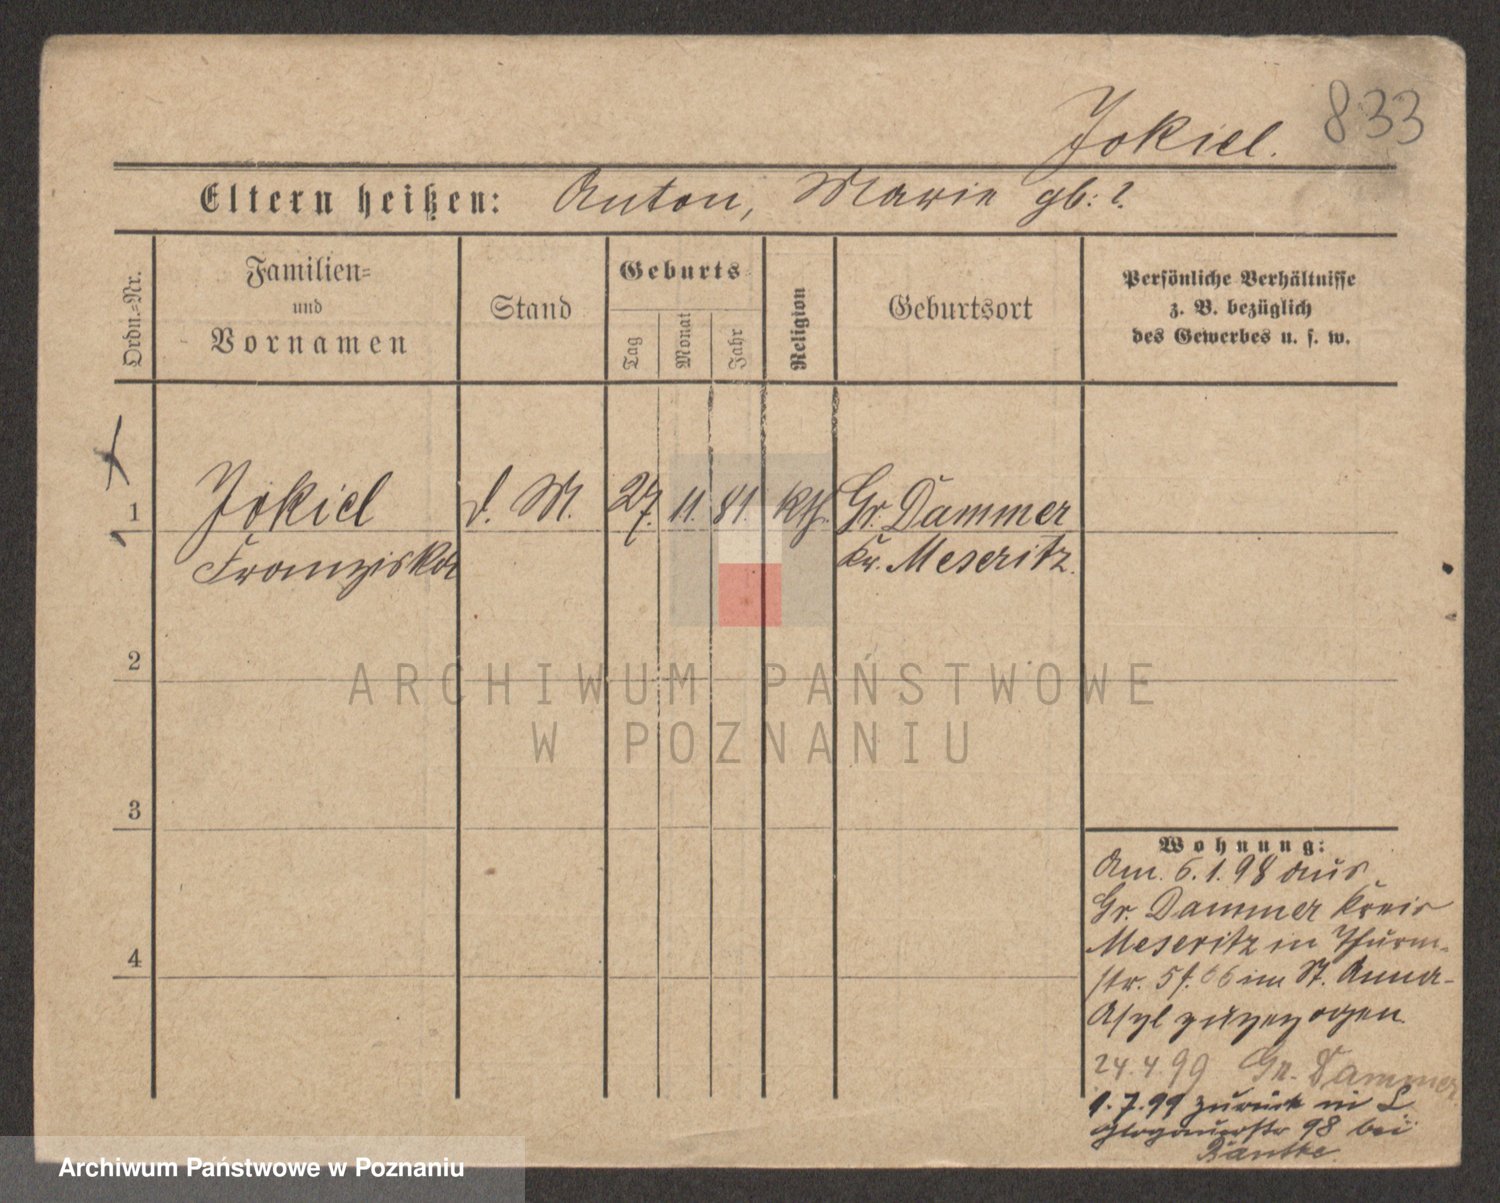 833
Jokiel.
Eltern heißen: Anton, Marie gb: ?
Ordn.=Nr.
Familien=
und
Vornamen
Stand
Geburts
Tag
Monat
Jahr
Religion
Geburtsort
Persönliche Verhältnisse
z. B. bezüglich
des Gewerbes u. s. w.
1 Jokiel d. M. 27. 11. 81. kth. Gr. Dammer
Franziska Kr. Meseritz.
2
3
4
Wohnung:
Am. 6. 1. 98 aus
Gr. Dammer Kreis
Meseritz in Thurm-
str. 5 im St. Anna-
Asyl zugezogen
24. 4. 99 Gr. Dammer
1. 7. 99 zurück in L.
Glogauerstr 98 bei
ARCHIWUM PAŃSTWOWE
W POZNANIU
Archiwum Państwowe w Poznaniu